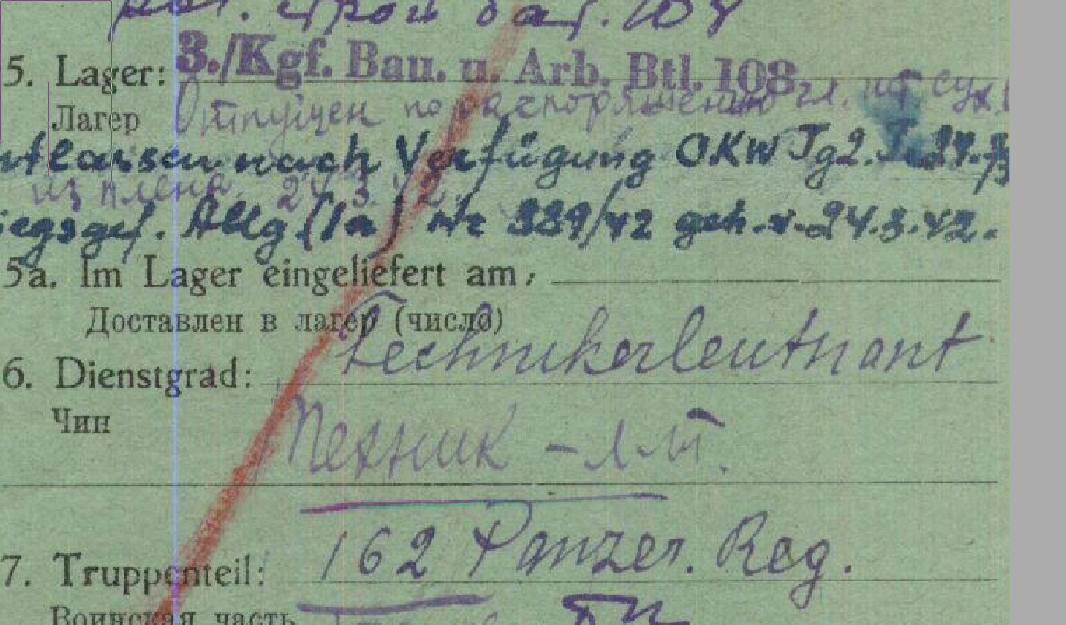 раб. строй бат. 108
5. Lager: 3./Kgf. Bau. u. Arb. Btl. 108.
Лагер Отпущен по распоряжению гл. шт. сух.
entlassen nach Verfügung OKW Tg2.
из плена 24.3.42
iegsgef. Allg (Ia) Nr 389/42 geh. v. 24.3.42.
5a. Im Lager eingeliefert am:
Доставлен в лагер (число)
6. Dienstgrad: Technikerleutnant
Чин
Техник - л-т.
7. Truppenteil: 162 Panzer. Reg.
Воинская часть